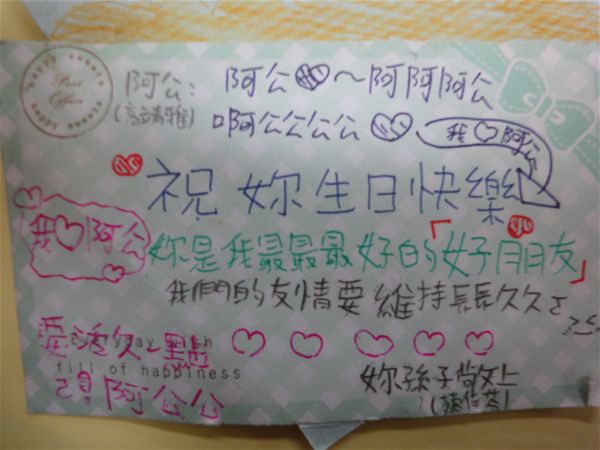 阿公： 阿公～阿阿阿公
啊公公公公
我 阿公
祝妳生日快樂
我 阿公
妳是我最最最好的「好朋友」
我們的友情要維持長長久久
要活久一點
fill of happiness
阿公公
妳孫子敬上